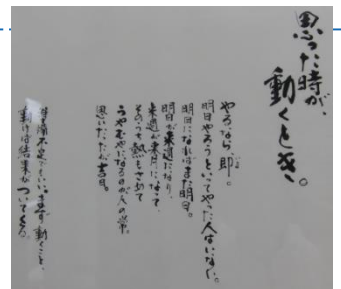 思った時が、
動くとき。
やるなら即。
明日やろうといってやった人はいない。
明日になればまた明日。
明日が来週になり、
来週が来月になって、
そのうち熱もさめて
うやむやになるのが人の常。
思いたったが吉日。
準備不足でいい、まず動くこと、
動けば結果がついてくる。